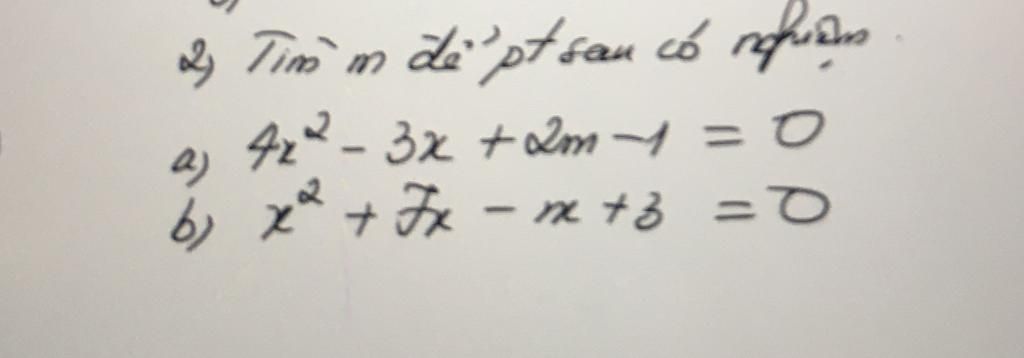 2) Tìm m để pt sau có nghiệm.
a) 4x² - 3x + 2m - 1 = 0
b) x² + 7x - m + 3 = 0